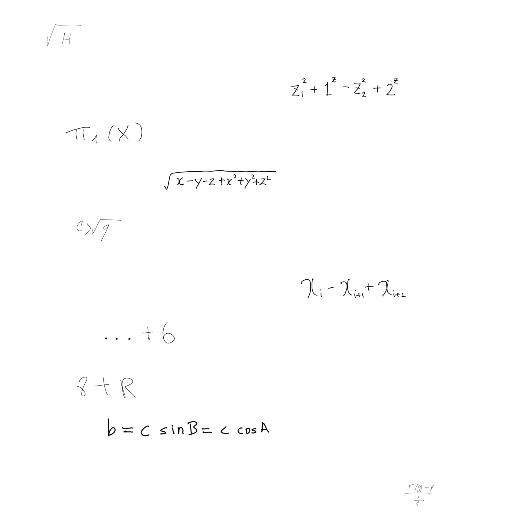 √H
z₁² + 1^z - z₂² + 2^z
π₁(X)
√(x-y-z+x²+y²+z²)
c>√q
x_i - x_{i+1} + x_{i+2}
... + 6
8 + R
b = c sin B = c cos A